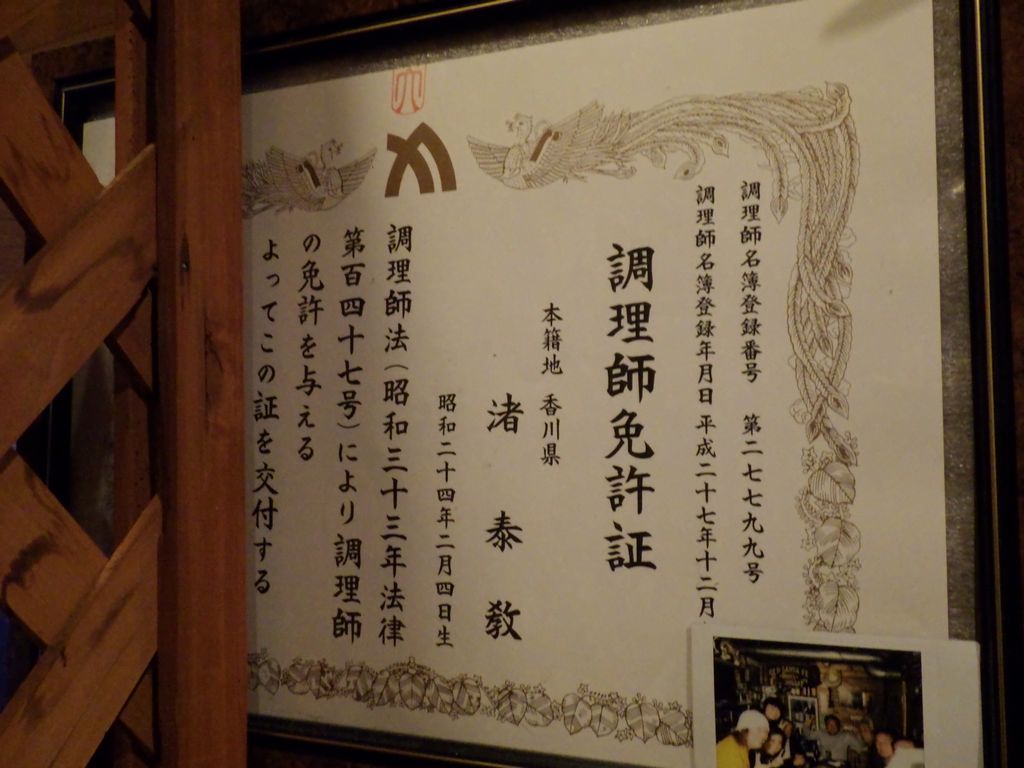 調理師名簿登録番号 第二七七九九号
調理師名簿登録年月日 平成二十七年十二月
調理師免許証
本籍地 香川県
渚 泰 教
昭和二十四年二月四日生
調理師法(昭和三十三年法律
第百四十七号)により調理師
の免許を与える
よってこの証を交付する